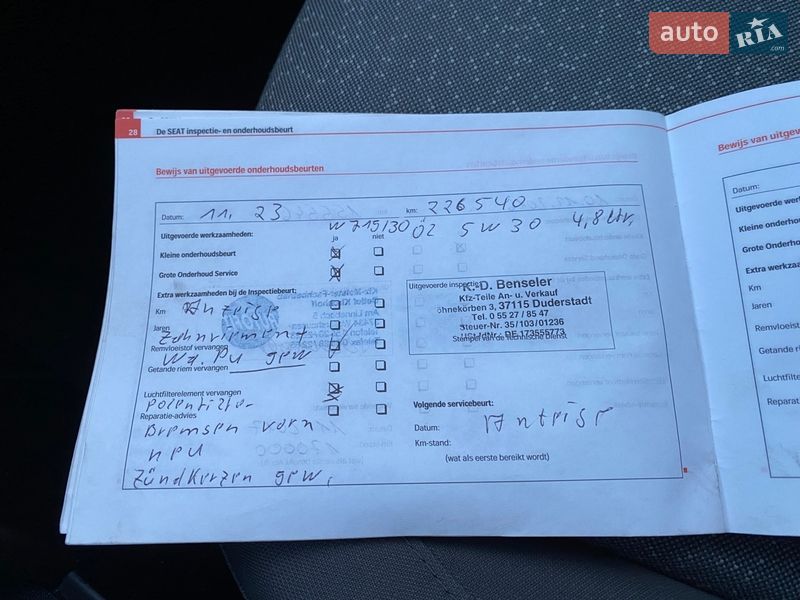 auto RIA .com
28 De SEAT inspectie- en onderhoudsbeurt
Bewijs van uitgevoerde onderhoudsbeurten
Bewijs van uitgevoe
Datum: 11. 23 km: 226540
W 715/30 Öl 5W30 4,8 Ltr,
Uitgevoerde werkzaamheden: ja niet
Kleine onderhoudsbeurt
Grote Onderhoud Service
Extra werkzaamheden bij de Inspectiebeurt:
Km
Jaren
Zahnriemen
Remvloeistof vervangen
Wa. Pu gew
Getande riem vervangen
Luchtfilterelement vervangen
Pollenfilter
Reparatie-advies
Bremsen vorn
neu
Zündkerzen gew.
Uitgevoerde inspectie
K.-D. Benseler
Kfz-Teile An- u. Verkauf
37115 Duderstadt
Tel. 0 55 27 / 85 47
Steuer-Nr. 35/103/01236
USt-IdNr.: DE 173555773
Stempel van de Technische Dienst
Volgende servicebeurt:
Datum:
Km-stand:
(wat als eerste bereikt wordt)
Datum:
Uitgevoerde werk
Kleine onderhou
Grote Onderho
Extra werkzaam
Km
Jaren
Remvloeistof
Getande riem
Luchtfilterel
Reparatie